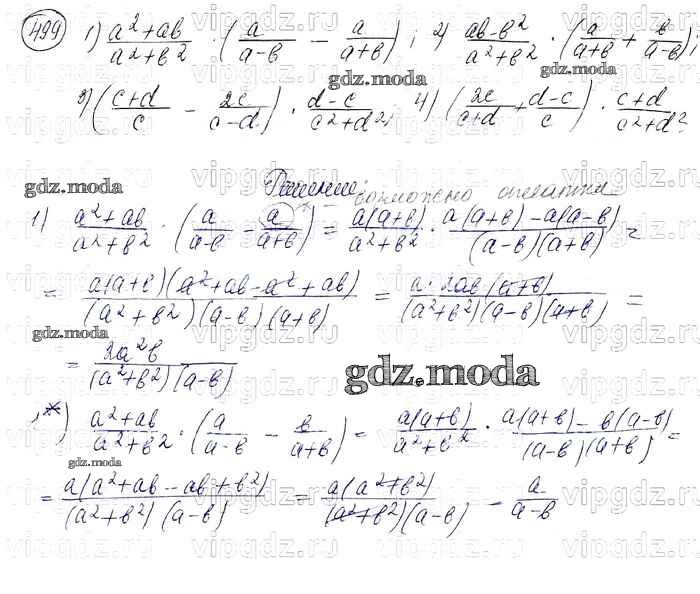 499 1) \frac{a^2+ab}{a^2+b^2} \cdot \left(\frac{a}{a-b} - \frac{a}{a+b}\right); 2) \frac{ab-b^2}{a^2+b^2} \cdot \left(\frac{a}{a+b} + \frac{b}{a-b}\right);
gdz.moda
3) \left(\frac{c+d}{c} - \frac{2c}{c-d}\right) \cdot \frac{d-c}{c^2+d^2}; 4) \left(\frac{2c}{c+d} + \frac{d-c}{c}\right) \cdot \frac{c+d}{c^2+d^2}
gdz.moda
Решение:
возможно опечатка
1) \frac{a^2+ab}{a^2+b^2} \cdot \left(\frac{a}{a-b} - \frac{a}{a+b}\right) = \frac{a(a+b)}{a^2+b^2} \cdot \frac{a(a+b)-a(a-b)}{(a-b)(a+b)} =
= \frac{a(a+b)(a^2+ab-a^2+ab)}{(a^2+b^2)(a-b)(a+b)} = \frac{a \cdot 2ab(a+b)}{(a^2+b^2)(a-b)(a+b)} =
gdz.moda
= \frac{2a^2b}{(a^2+b^2)(a-b)}
gdz.moda
*) \frac{a^2+ab}{a^2+b^2} \cdot \left(\frac{a}{a-b} - \frac{b}{a+b}\right) = \frac{a(a+b)}{a^2+b^2} \cdot \frac{a(a+b)-b(a-b)}{(a-b)(a+b)} =
gdz.moda
= \frac{a(a^2+ab-ab+b^2)}{(a^2+b^2)(a-b)} = \frac{a(a^2+b^2)}{(a^2+b^2)(a-b)} - \frac{a}{a-b}
vipgdz.ru